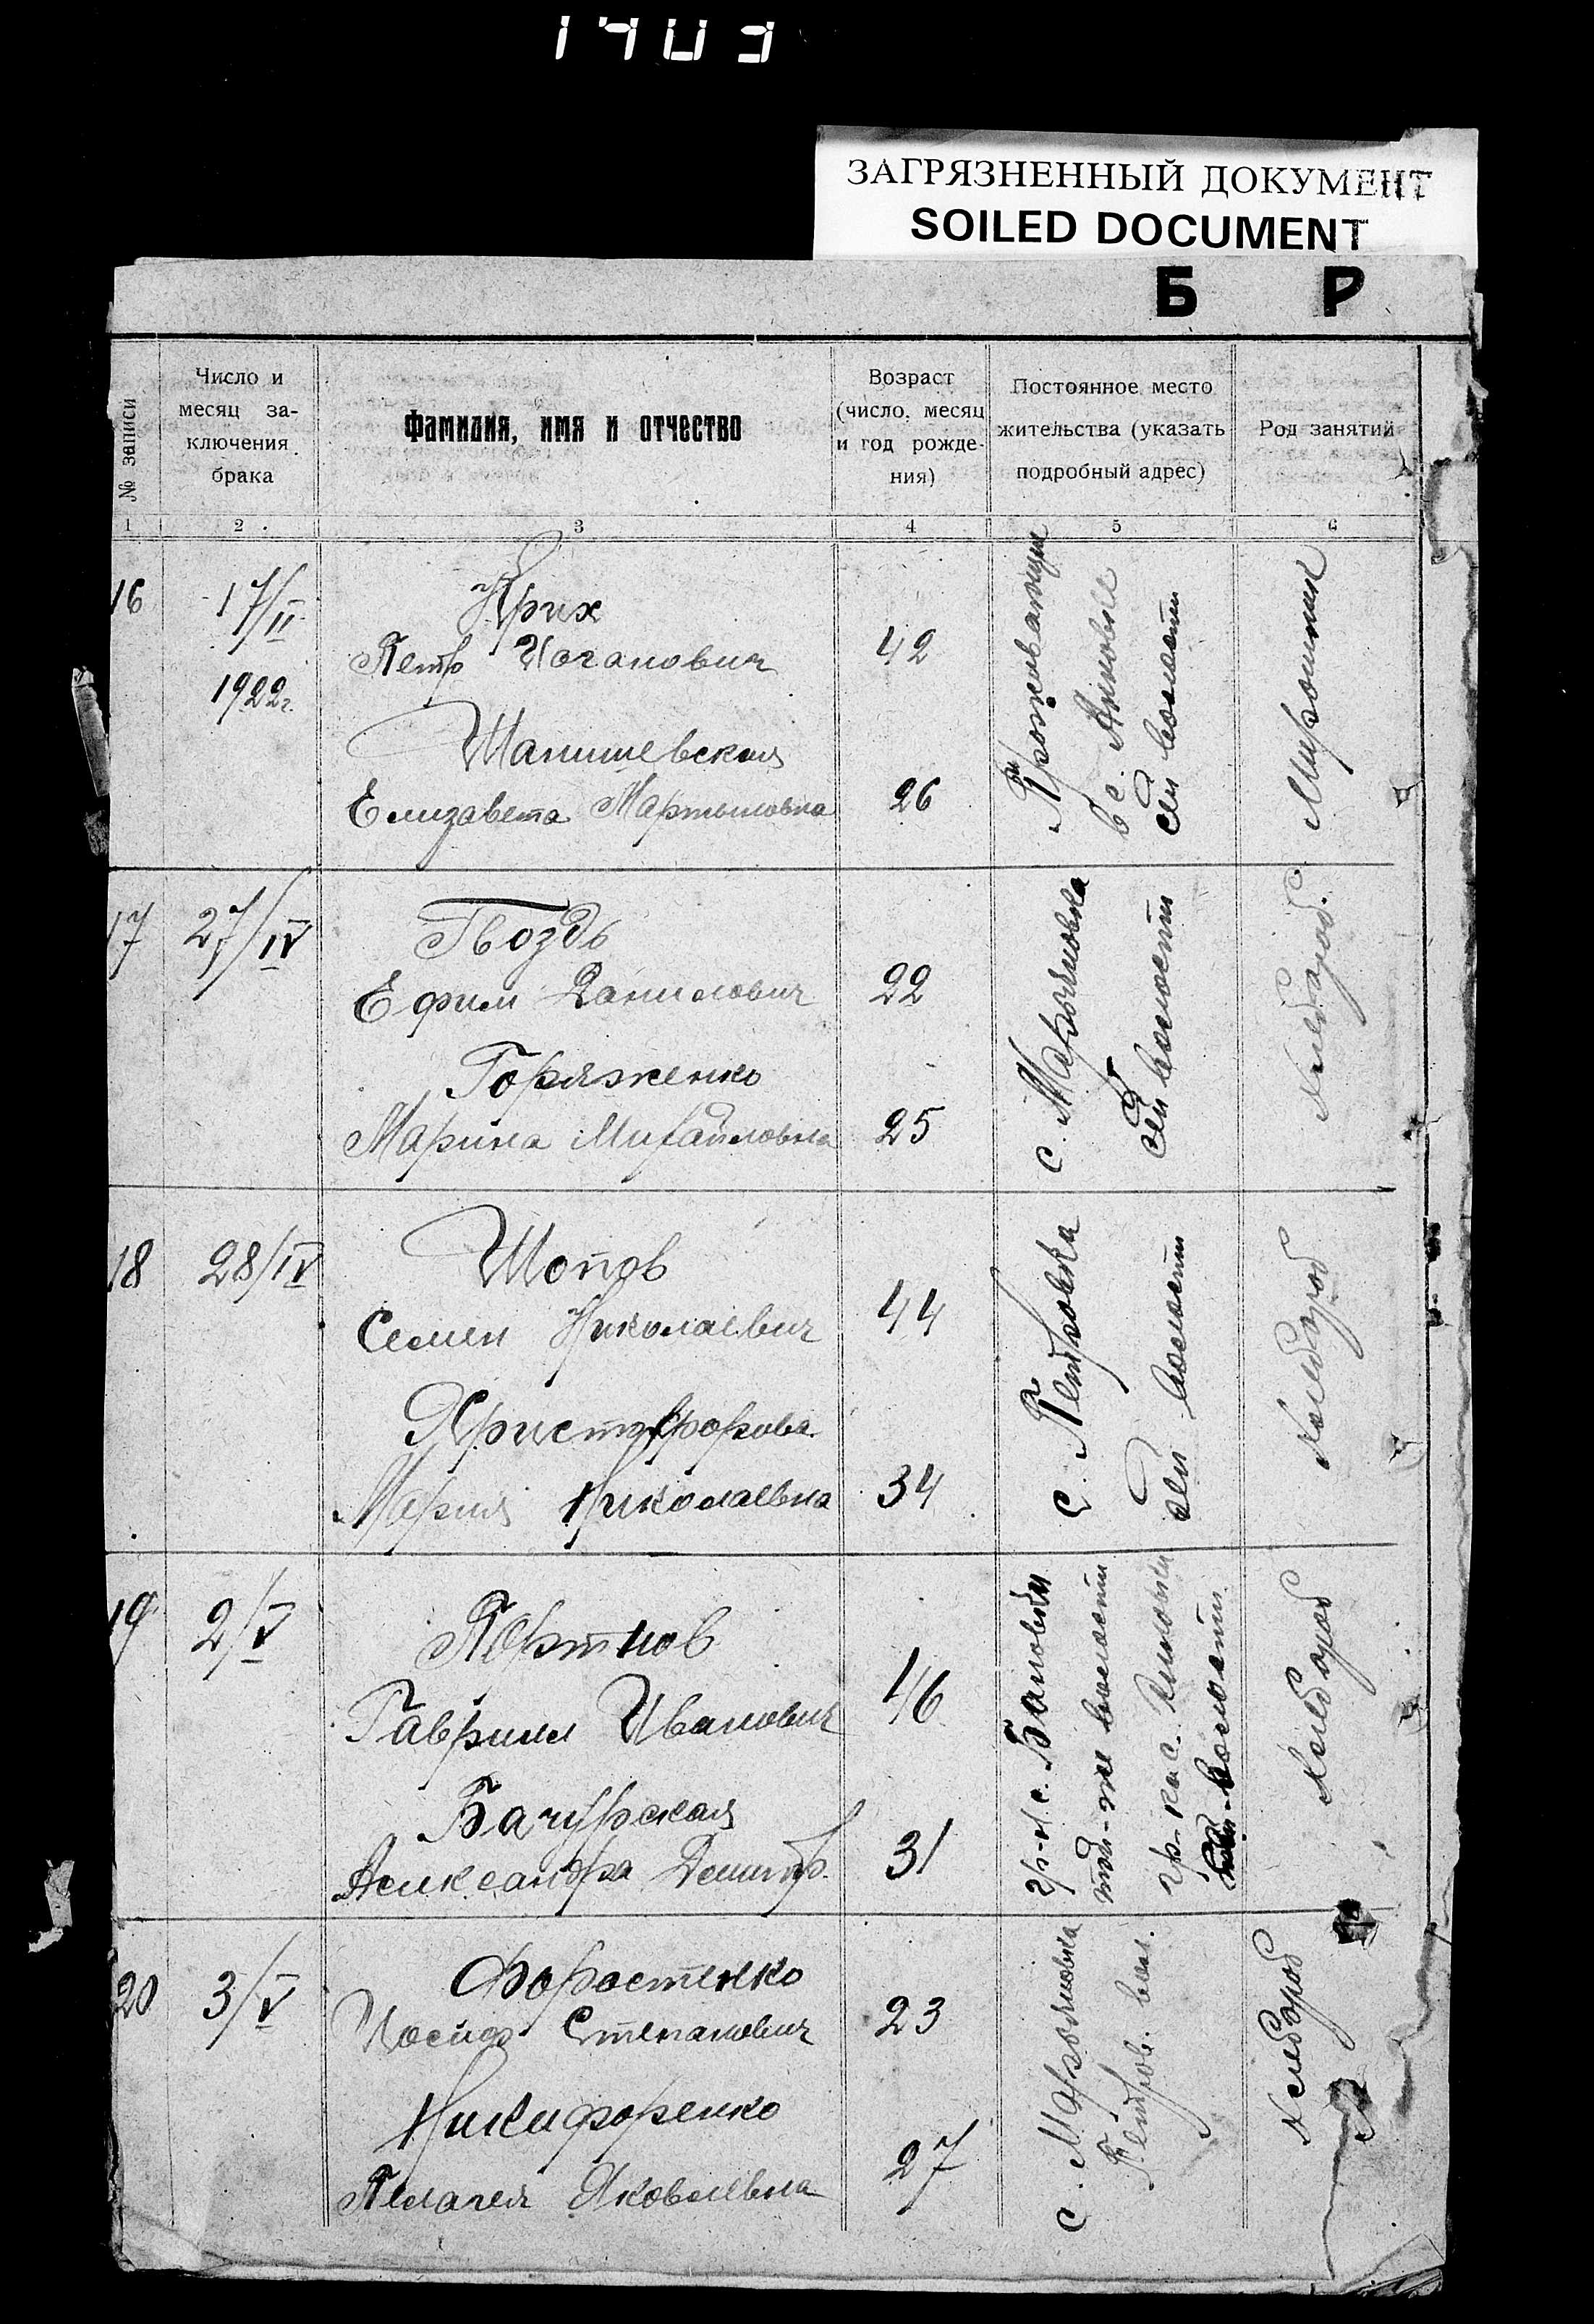 1403
ЗАГРЯЗНЕННЫЙ ДОКУМЕНТ
SOILED DOCUMENT
Б Р
№ записи
Число и месяц за-
ключения брака
Фамилия, имя и отчество
Возраст (число, месяц и год рожде-
ния)
Постоянное место жительства (указать подробный адрес)
Род занятий
1 2 3 4 5 6
16
17/II
1922г.
Крих
Петр Иоганович
42
Шанишевская
Елизавета Мартыновна
26
Проживающие
в с. Анновке
сей волости
17
27/IV
Гвоздь
Ефим Данилович
22
Горяженко
Марина Михайловна
25
с. Марьяновка
сей волости
Хлебороб.
18
28/IV
Шопов
Семен Николаевич
44
Христофорова
Мария Николаевна
34
с. Петровка
сей волости
Хлебороб
19
2/V
Портнов
Гавриил Иванович
46
Бачурская
Александра Димитр.
31
гр-н с.
той-же волости
гр-ка с.
волости
Хлебороб
20
3/V
Форостенко
Иосиф Степанович
23
Никифоренко
Пелагея Яковлевна
27
с. Марьяновка
Петров. вол.
Хлебороб